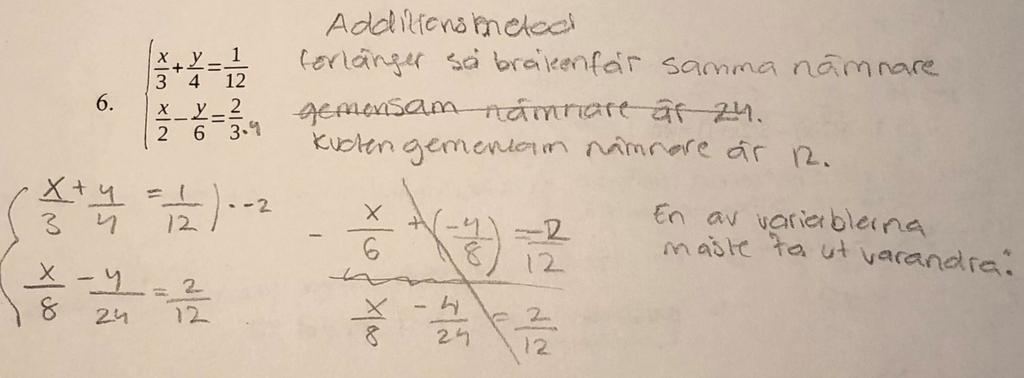 Additionsmetod
6. x/3 + y/4 = 1/12
x/2 - y/6 = 2/3 ·4
förlänger så bråken får samma nämnare
gemensam nämnare är 24.
Kvoten gemensam nämnare är 12.
x/3 + y/4 = 1/12 ) · -2
x/8 - y/24 = 2/12
- x/6 + (-y/8) = -2/12
x/8 - y/24 = 2/12
En av variablerna
måste ta ut varandra: